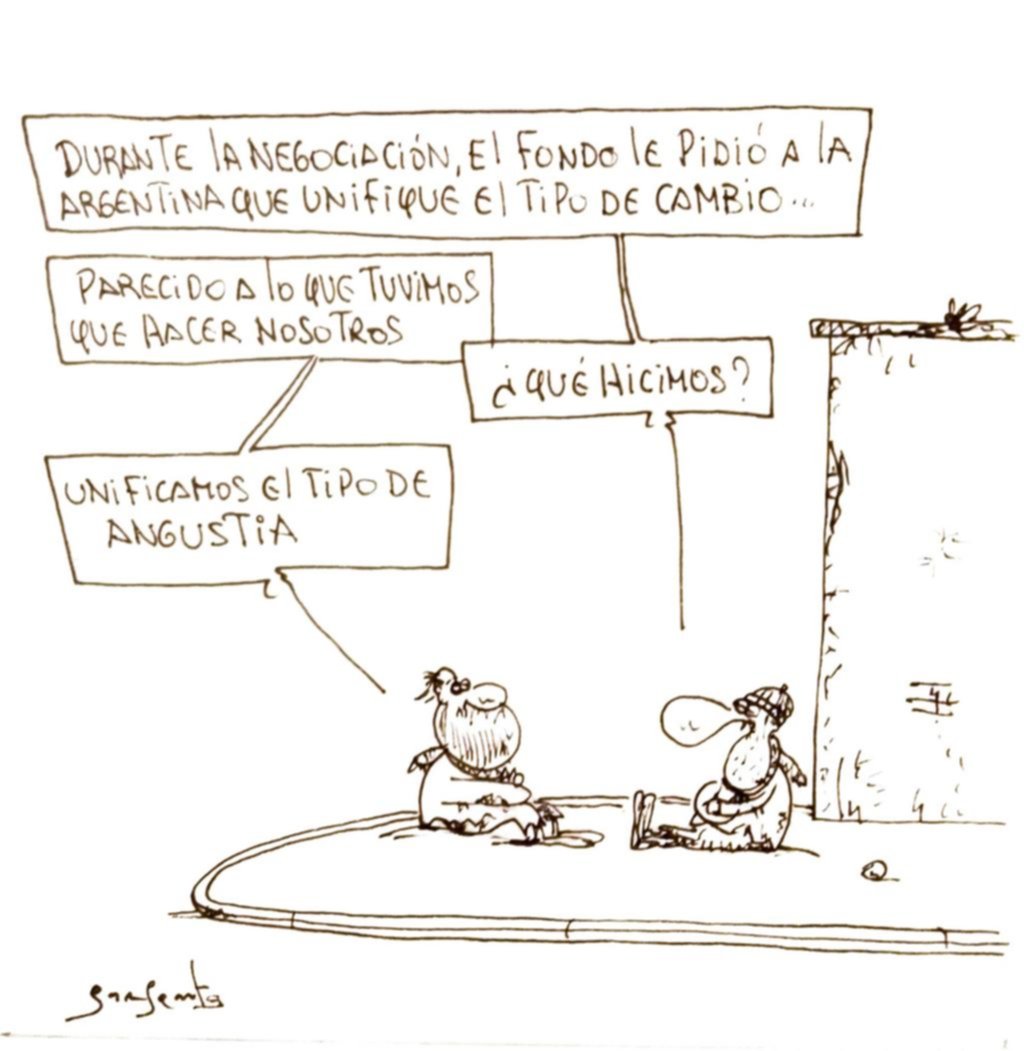 DURANTE lA NEGOCIACIÓN, El FONDO lE PiDiÓ A lA
ARGENTINA QUE UNiFiQUE El TiPO DE CAMBiO...
PARECiDO A lo QUE TUViMOS
QUE HACER NOSOTROS
¿QUÉ HiCiMOS?
UNiFiCAMOS El TiPO DE
ANGUSTiA